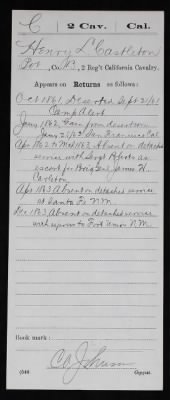 C | 2 Cav. | Cal.
Henry L Castleton
Pvt, Co. B, 2 Reg't California Cavalry.
Appears on Returns as follows:
Oct 1861 Deserted Sept 21/61
Camp Alert
Jany 1862 Gain from desertion
Jany 21/62 San Francisco Cal
Apr 1862 to Mch 1863 Absent on detached
service with Sergt as
escort for Brig Genl James H.
Carleton
Apr 1863 Absent on detached service
at Santa Fe N.M.
1863 Absent on detached service
with to Fort Union N.M.
Book mark:
(546)
Copyist.